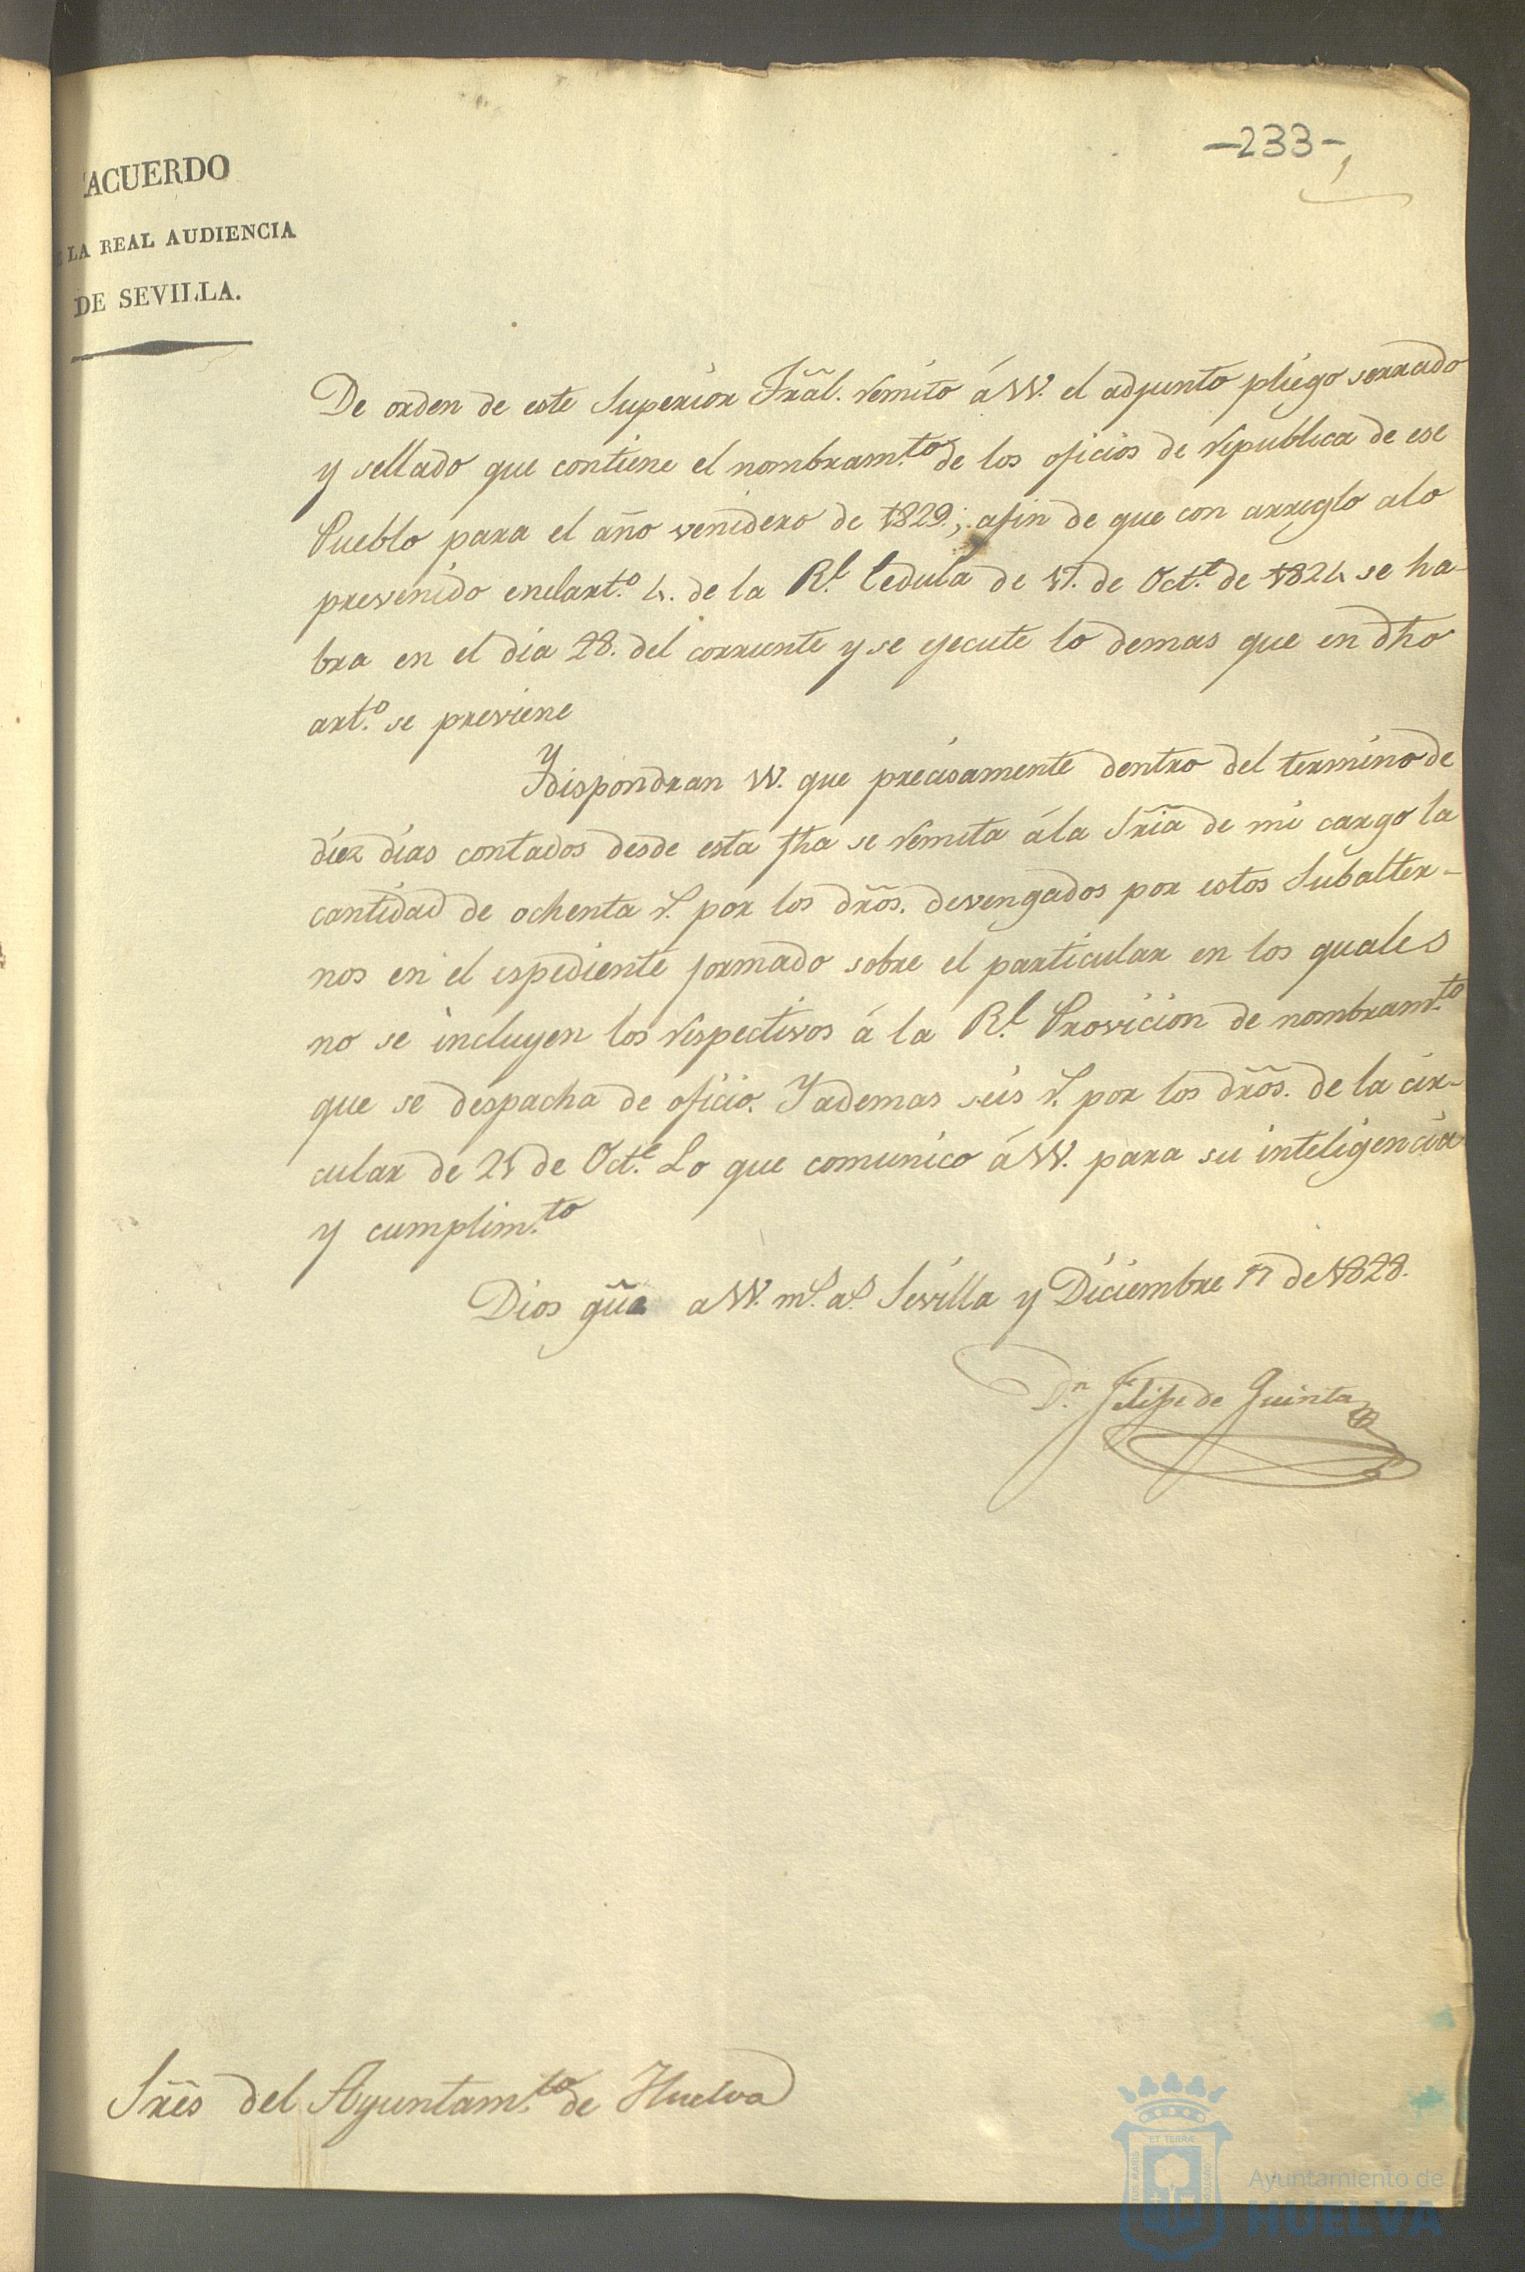 -233-
ACUERDO
E LA REAL AUDIENCIA
DE SEVILLA.
De orden de este Superior Trãl. remito á VV. el adjunto pliego serrado
y sellado que contiene el nombram.to de los oficios de republica de ese
Pueblo para el año venidero de 1829; afin de que con arreglo alo
prevenido enelart.o 4. de la R.l Cedula de 17. de Oct.e de 1824 se ha-
bra en el dia 28. del corriente y se ejecute lo demas que en dho
art.o se previene
Y dispondran VV. que precisamente dentro del termino de
diez dias contados desde esta fha se remita á la Sriã de mi cargo la
cantidad de ochenta r.s por los drõs. devengados por estos Subalter-
nos en el espediente formado sobre el particular en los quales
no se incluyen los respectivos á la R.l Provicion de nombram.to
que se despacha de oficio. Y ademas seis r.s por los drõs. de la cir-
cular de 21 de Oct.e Lo que comunico á VV. para su inteligencia
y cumplim.to
Dios gũe a VV. m.s a.s Sevilla y Diciembre 17 de 1828.
D.n Felipe de Quinta
Srẽs del Ayuntam.to de Huelva
ET TERRÆ
Ayuntamiento de
HUELVA